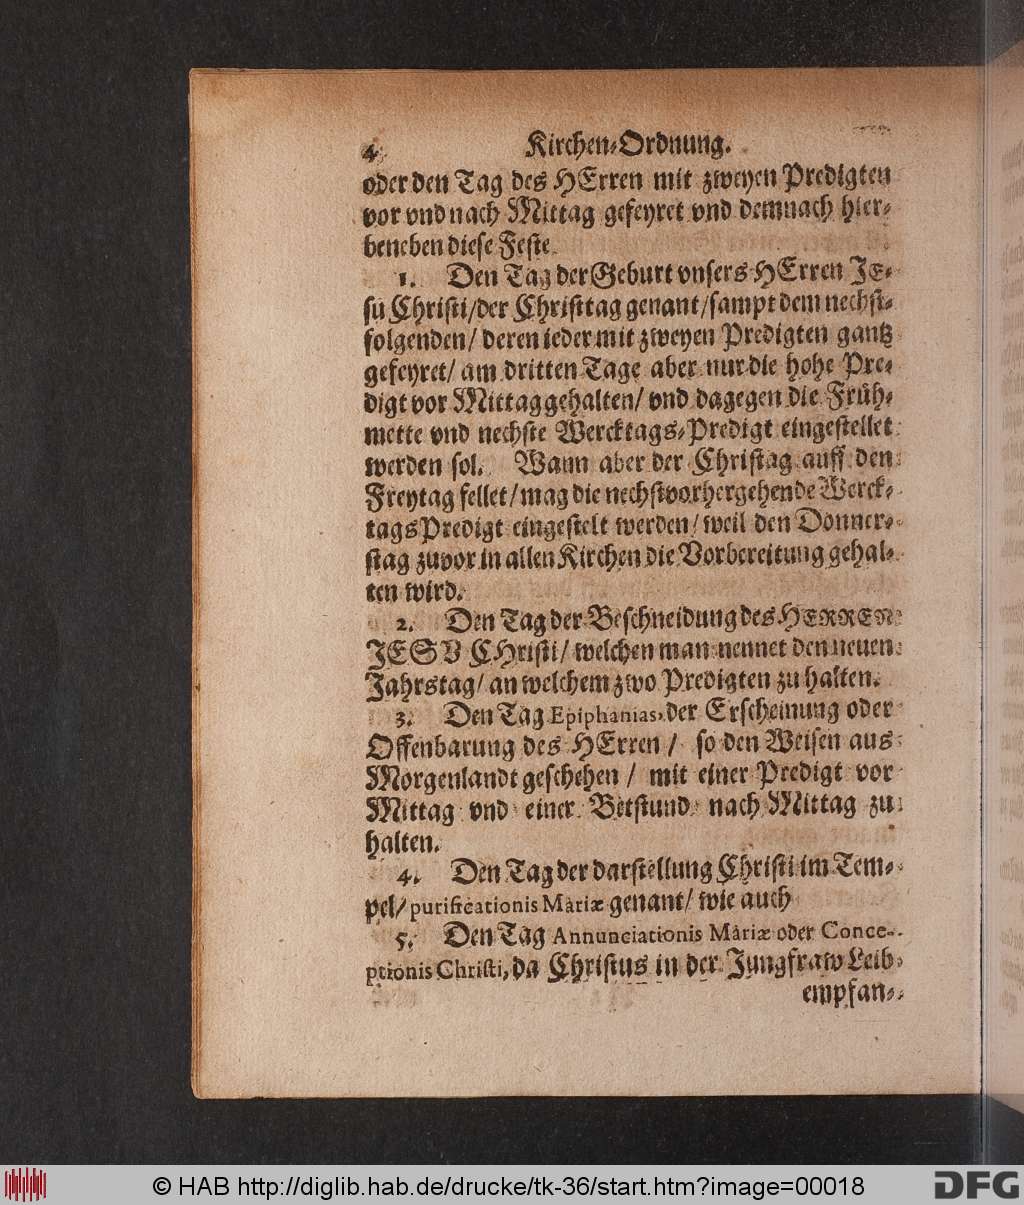 4 Kirchen-Ordnung.
oder den Tag des HErren mit zweyen Predigten
vor vnd nach Mittag gefeyret vnd demnach hier-
beneben diese Feste
1. Den Tag der Geburt vnsers HErren JE-
su Christi/der Christtag genant/sampt dem nechst-
folgenden/ deren ieder mit zweyen Predigten gantz
gefeyret/ am dritten Tage aber nur die hohe Pre-
digt vor Mittag gehalten/ vnd dagegen die Früh-
mette vnd nechste Wercktags-Predigt eingestellet
werden sol. Wann aber der Christag auff den
Freytag fellet/mag die nechstvorhergehende Werck-
tags Predigt eingestelt werden/ weil den Donner-
stag zuvor in allen Kirchen die Vorbereitung gehal-
ten wird.
2. Den Tag der Beschneidung des HERREN
JESV CHristi/ welchen man nennet den neuen
Jahrstag/ an welchem zwo Predigten zu halten.
3. Den Tag Epiphanias, der Erscheinung oder
Offenbarung des HErren/ so den Weisen aus
Morgenlandt geschehen/ mit einer Predigt vor
Mittag vnd einer Betstund nach Mittag zu
halten.
4. Den Tag der darstellung Christi im Tem-
pel/ purificationis Mariæ genant/ wie auch
5. Den Tag Annunciationis Mariæ oder Conce-
ptionis Christi, da Christus in der Jungfraw Leib
empfan-
© HAB http://diglib.hab.de/drucke/tk-36/start.htm?image=00018
DFG